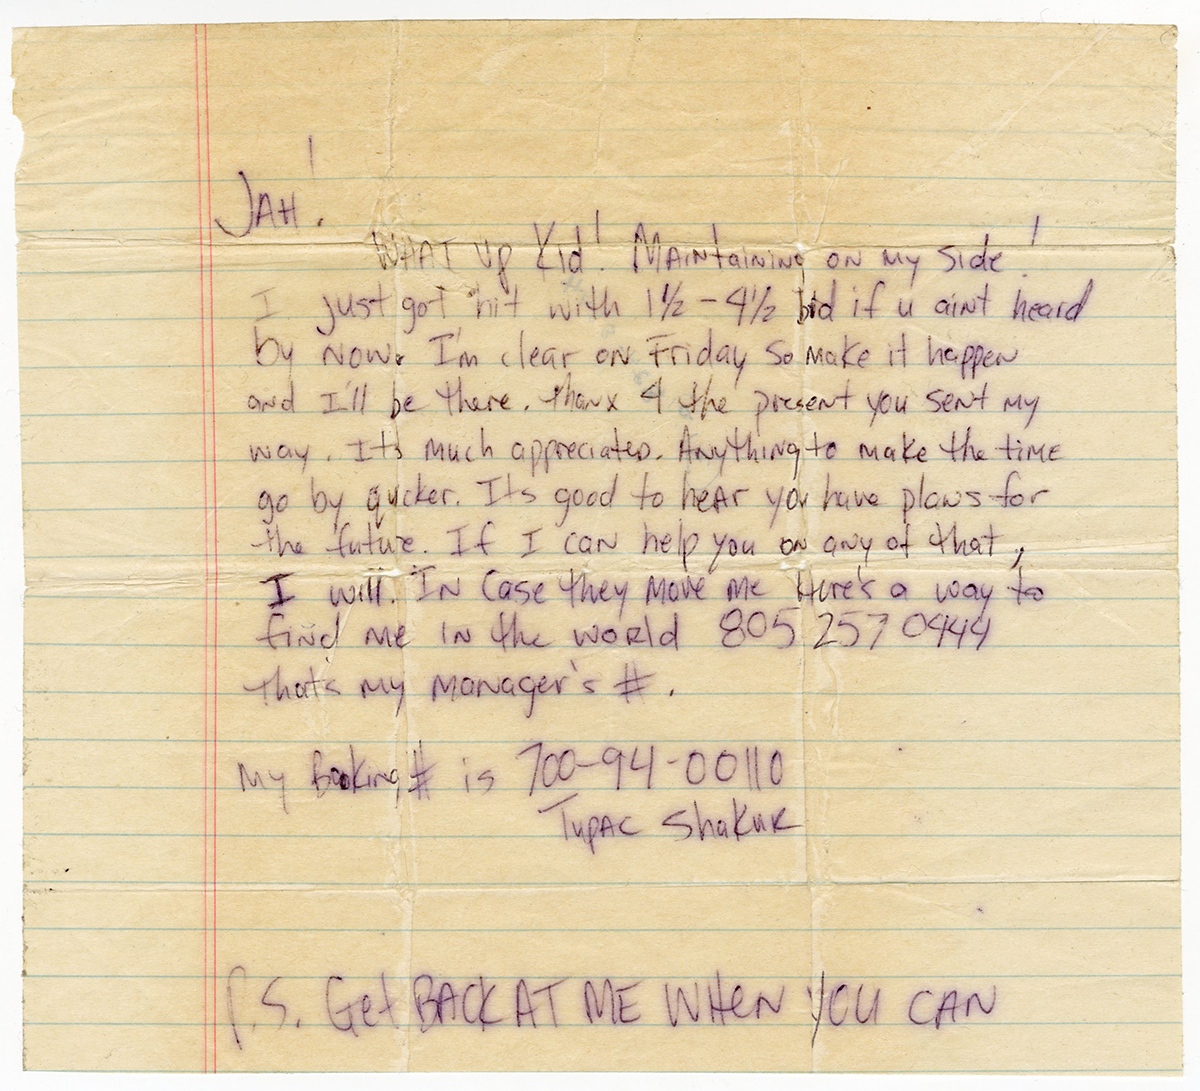 JAH!
WHAT up Kid! Maintaining on my side!
I just got hit with 1½ - 4½ bid if u aint heard
by now. I'm clear on Friday so make it happen
and I'll be there. thanx 4 the present you sent my
way. Its much appreciated. Anything to make the time
go by qucker. Its good to hear you have plans for
the future. If I can help you on any of that,
I will. In case they move me Here's a way to
find me in the world 805 257 0444
that's my manager's #.
My Booking # is 700-94-00110
Tupac Shakur
P.S. Get BACK AT ME WHEN YOU CAN